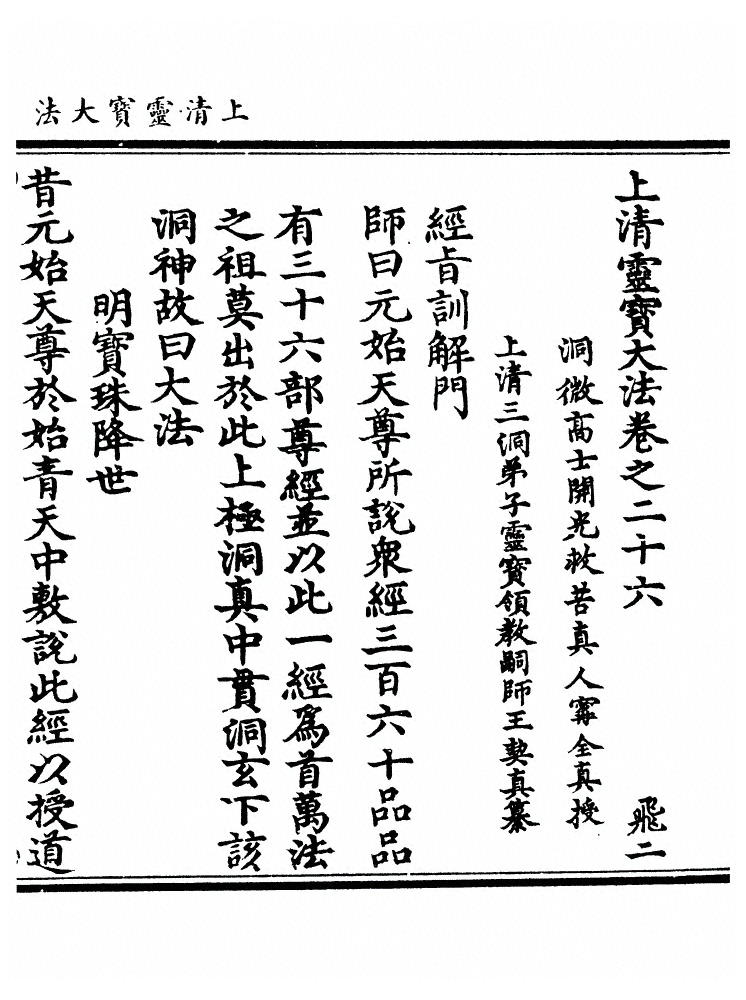 上清靈寶大法
上清靈寶大法卷之二十六 飛二
洞微高士開光救苦真人甯全真授
上清三洞弟子靈寶領教嗣師王契真纂
經旨訓解門
師曰元始天尊所說衆經三百六十品品
有三十六部尊經並以此一經爲首萬法
之祖莫出於此上極洞真中貫洞玄下該
洞神故曰大法
明寶珠降世
昔元始天尊於始青天中敷說此經以授道